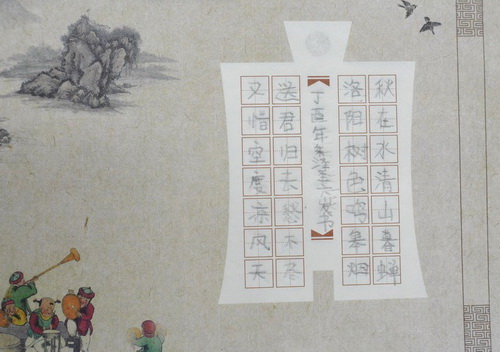 秋在水清山暮蝉
洛阳树色鸣皋烟
丁酉年六岁书
送君归去愁不尽
又惜空度凉风天